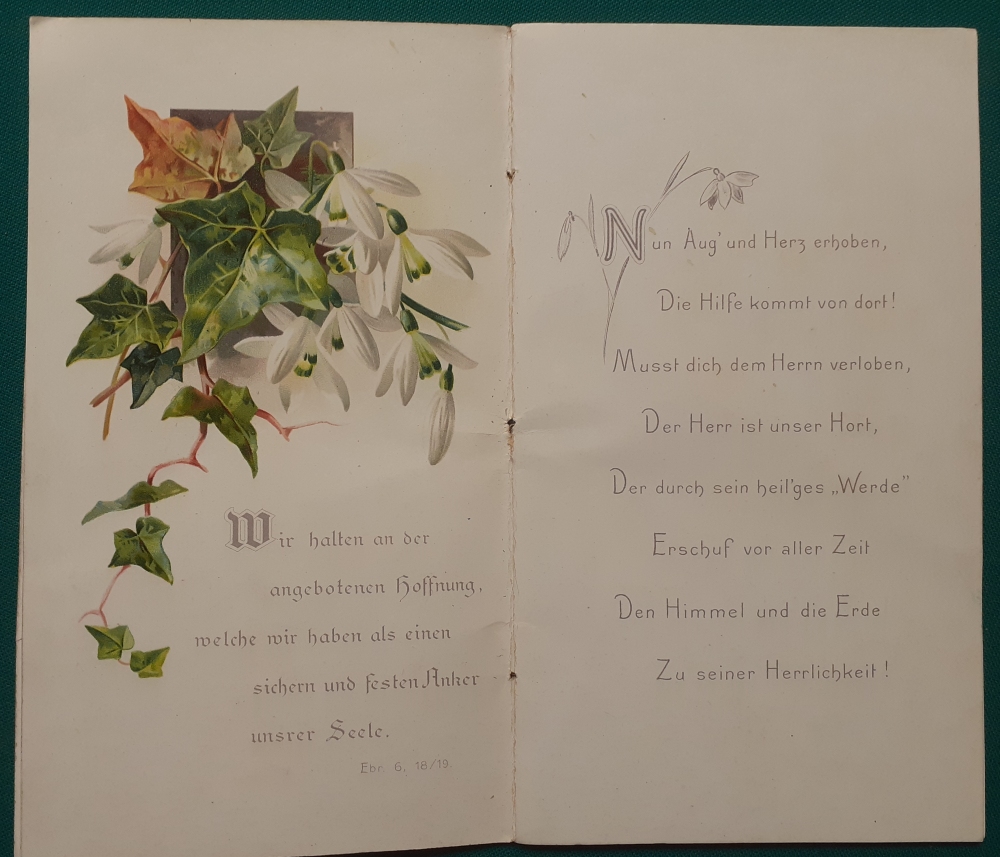 Wir halten an der
angebotenen Hoffnung,
welche wir haben als einen
sichern und festen Anker
unsrer Seele.
Ebr. 6, 18/19.
Nun Aug' und Herz erhoben,
Die Hilfe kommt von dort!
Musst dich dem Herrn verloben,
Der Herr ist unser Hort,
Der durch sein heil'ges „Werde"
Erschuf vor aller Zeit
Den Himmel und die Erde
Zu seiner Herrlichkeit!